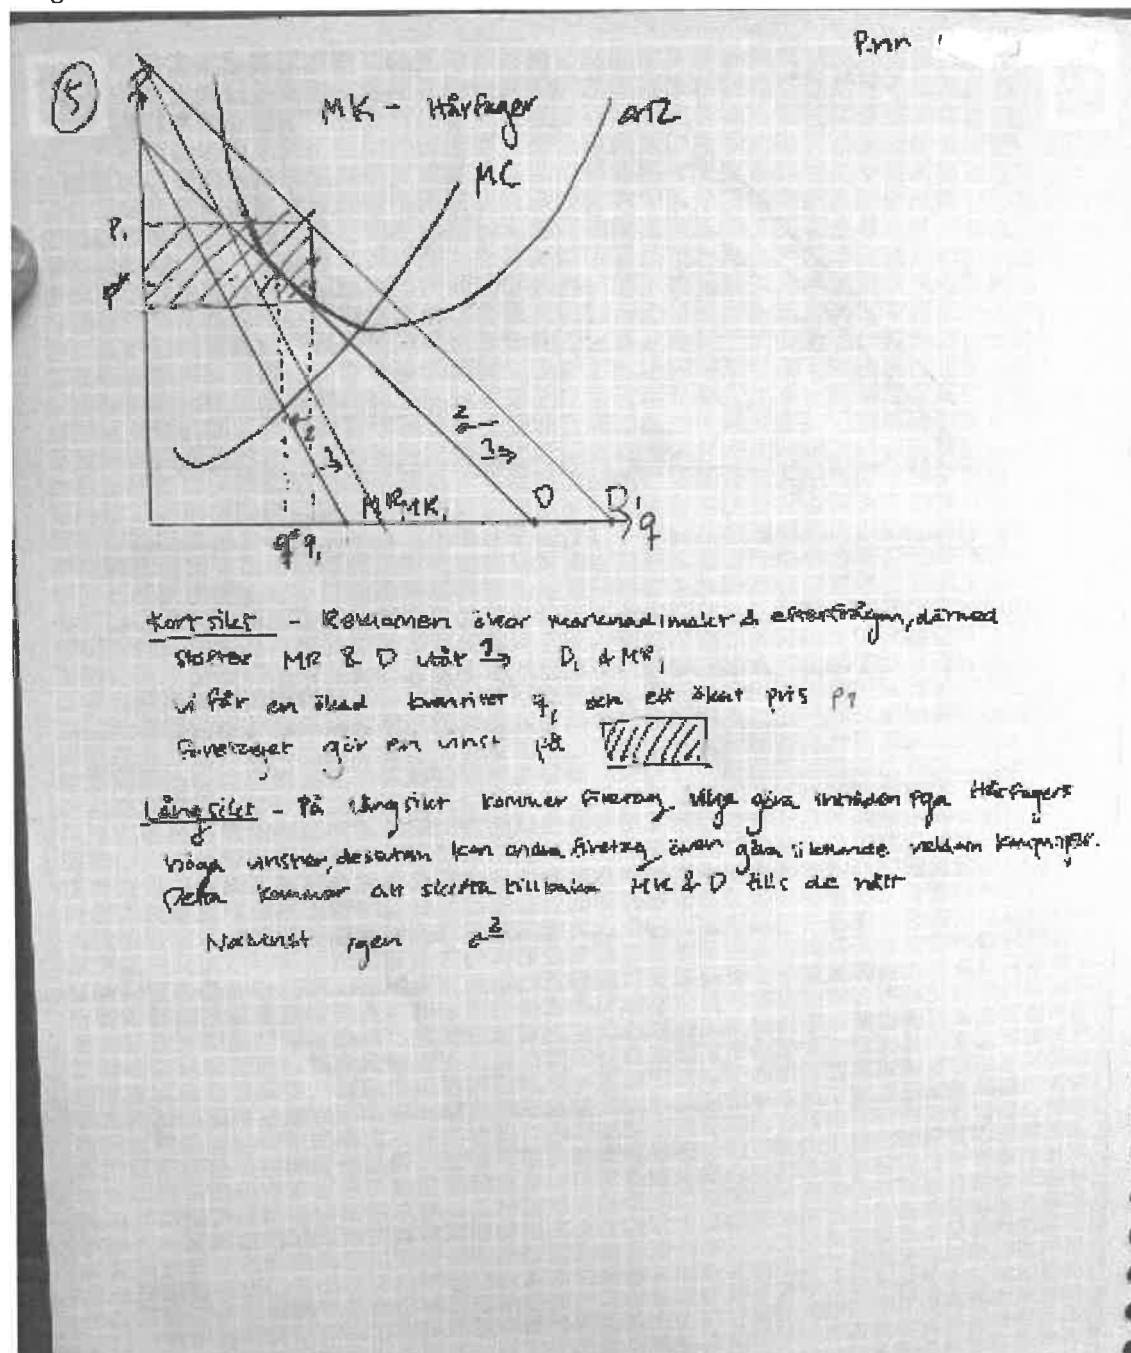 P.nr
5
MK - Hårfager
ATC
MC
P₁
P*
2
1
2
1
MR MR₁ D D' q
q* q₁
Kort sikt - Reklamen ökar marknadsmakt & efterfrågan, därmed
skiftar MR & D utåt 1→ D₁ & MR₁
vi får en ökad kvantitet q₁ och ett ökat pris P₁
företaget gör en vinst på
Lång sikt - På lång sikt kommer företag vilja göra inträden pga Hårfagers
höga vinster, dessutom kan andra företag även göra liknande reklam kampanjer.
Detta kommer att skifta tillbaka MR & D tills de nått
Nollvinst igen ←2